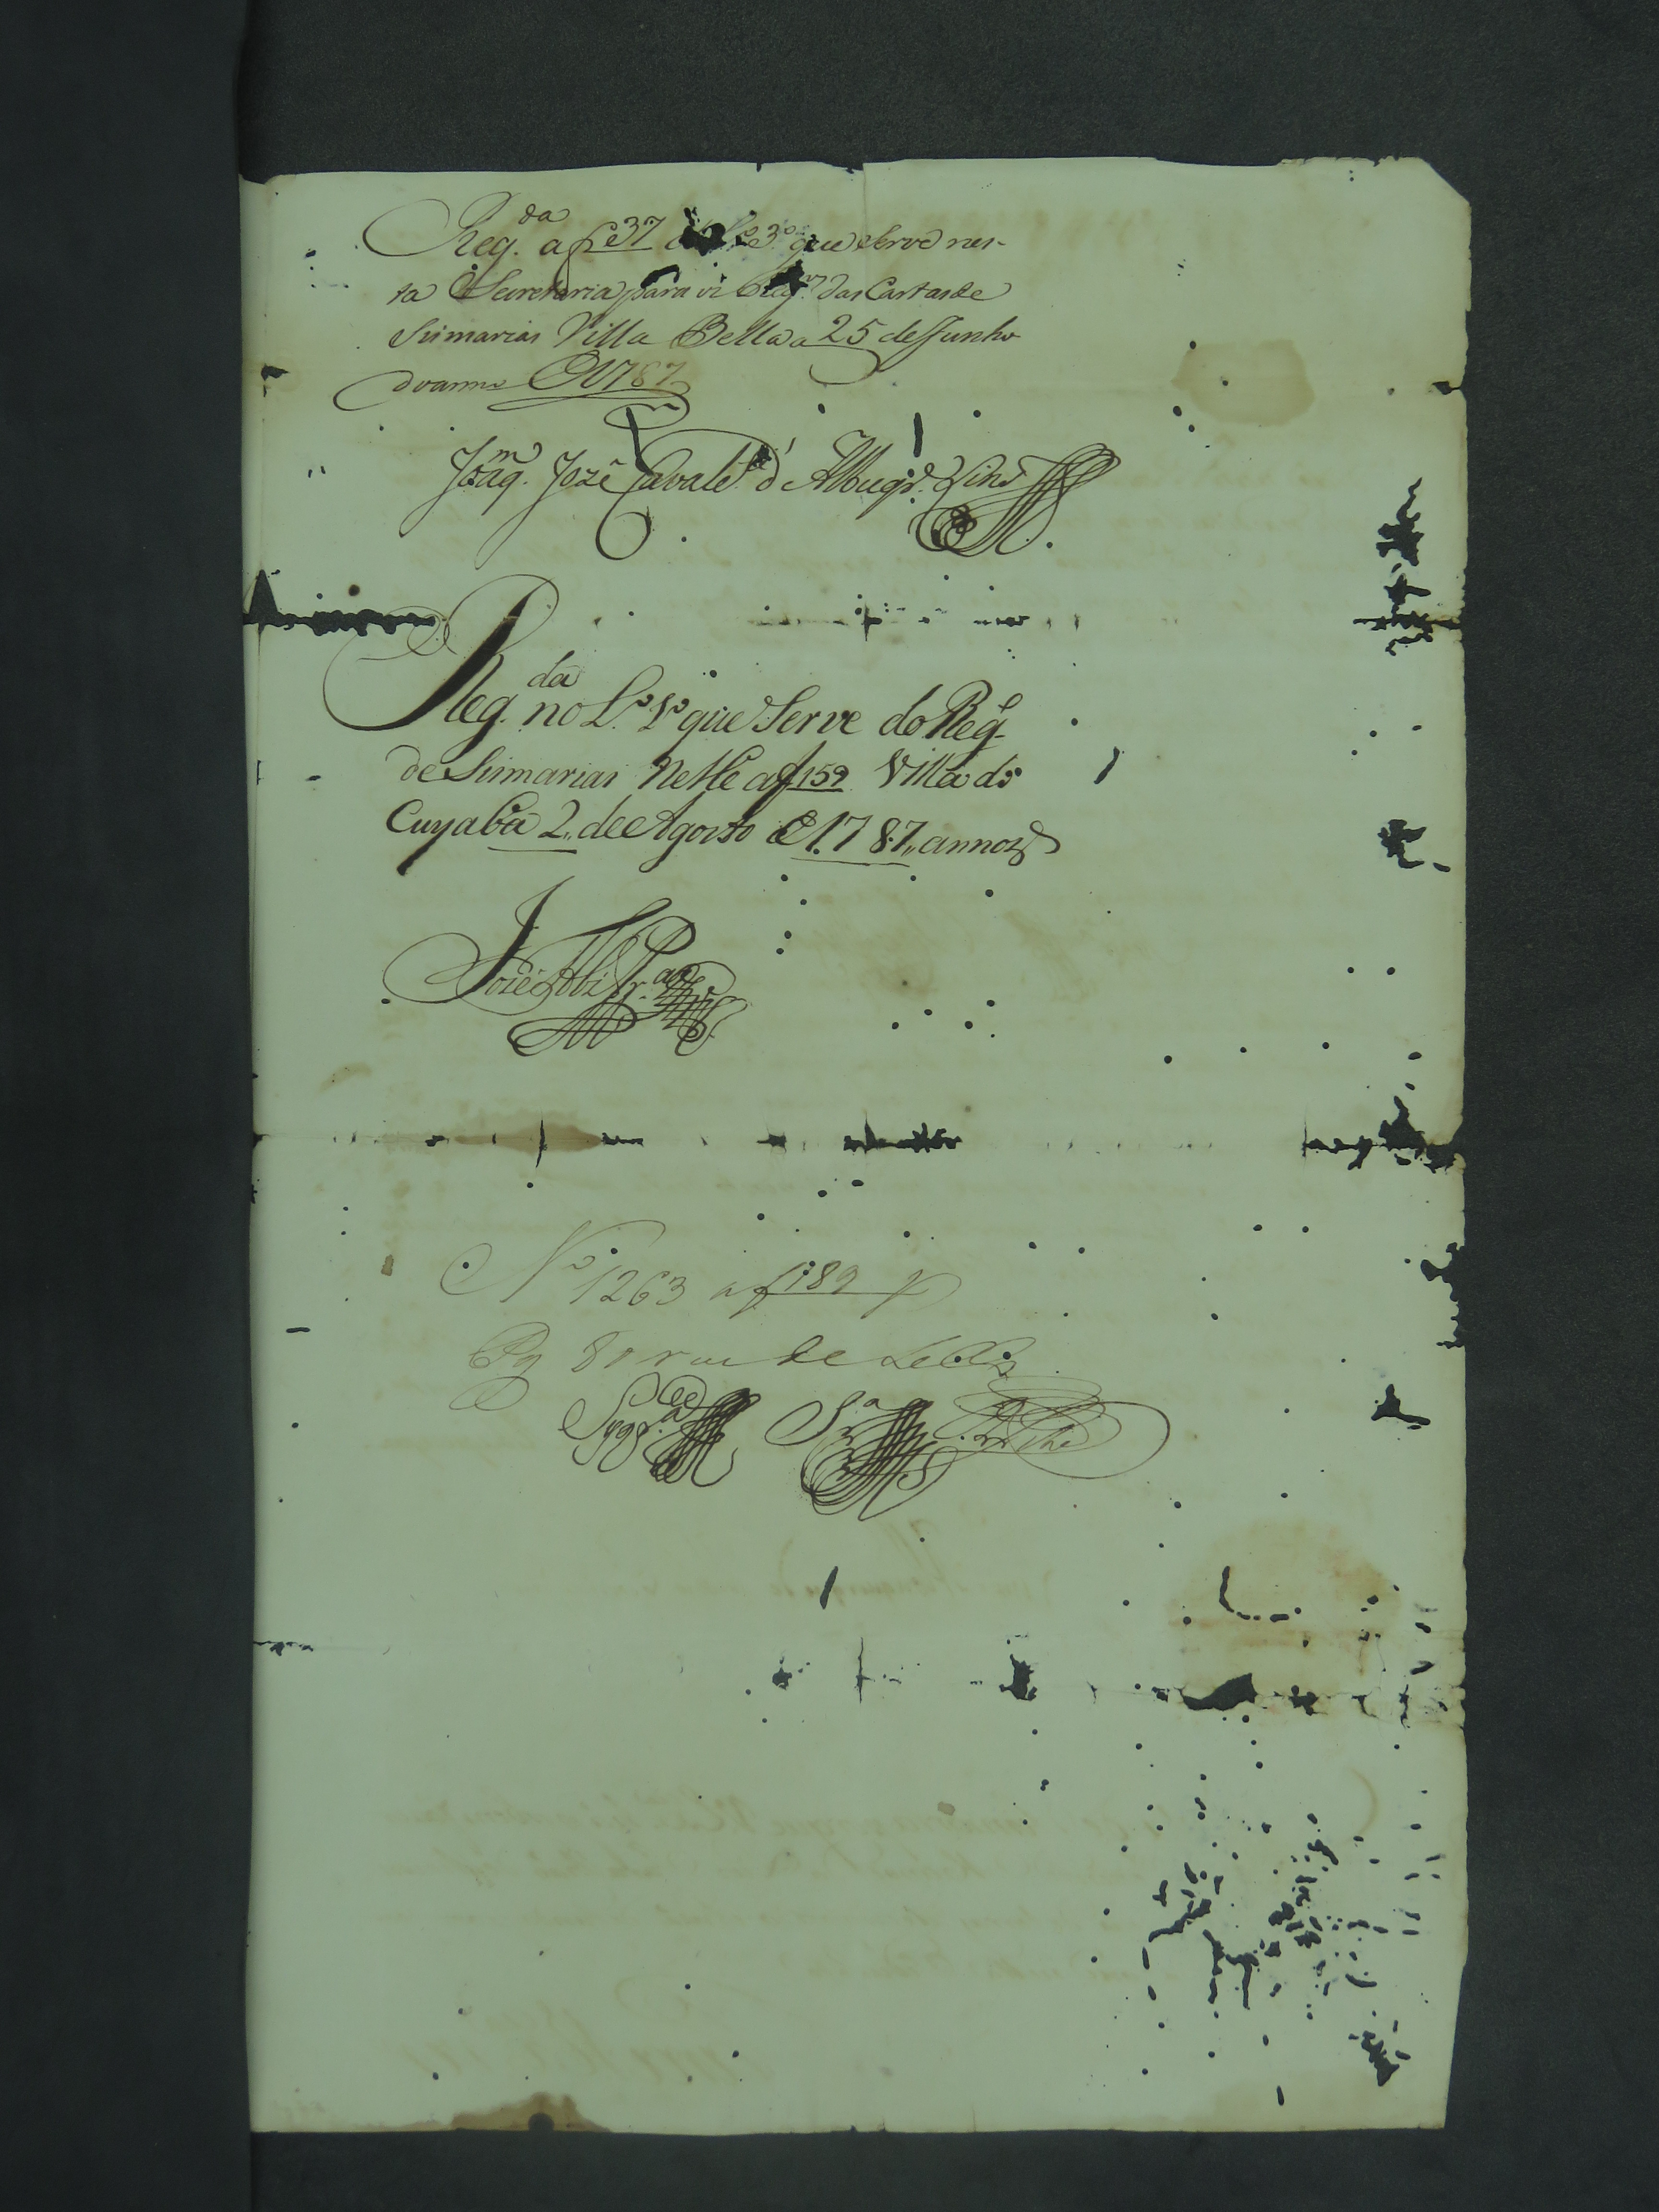 Reg.da a f 37 L.o 3.o que serve nes-
ta Secretaria para o Reg.o das Cartas de
Sismarias Villa Bella a 25 de Junho
do anno 1787
Joaq.m Jozé Cavalc.e d'Albuqr.e Lins
Reg.da no L.o 1.o que Serve do Reg.o
de Sismarias Nelle a f 159 Villa do
Cuyabá 2,, de Agosto de 1.787,, annos
Joze
N.o 1263 a f 189
Pg 80 r de Sello